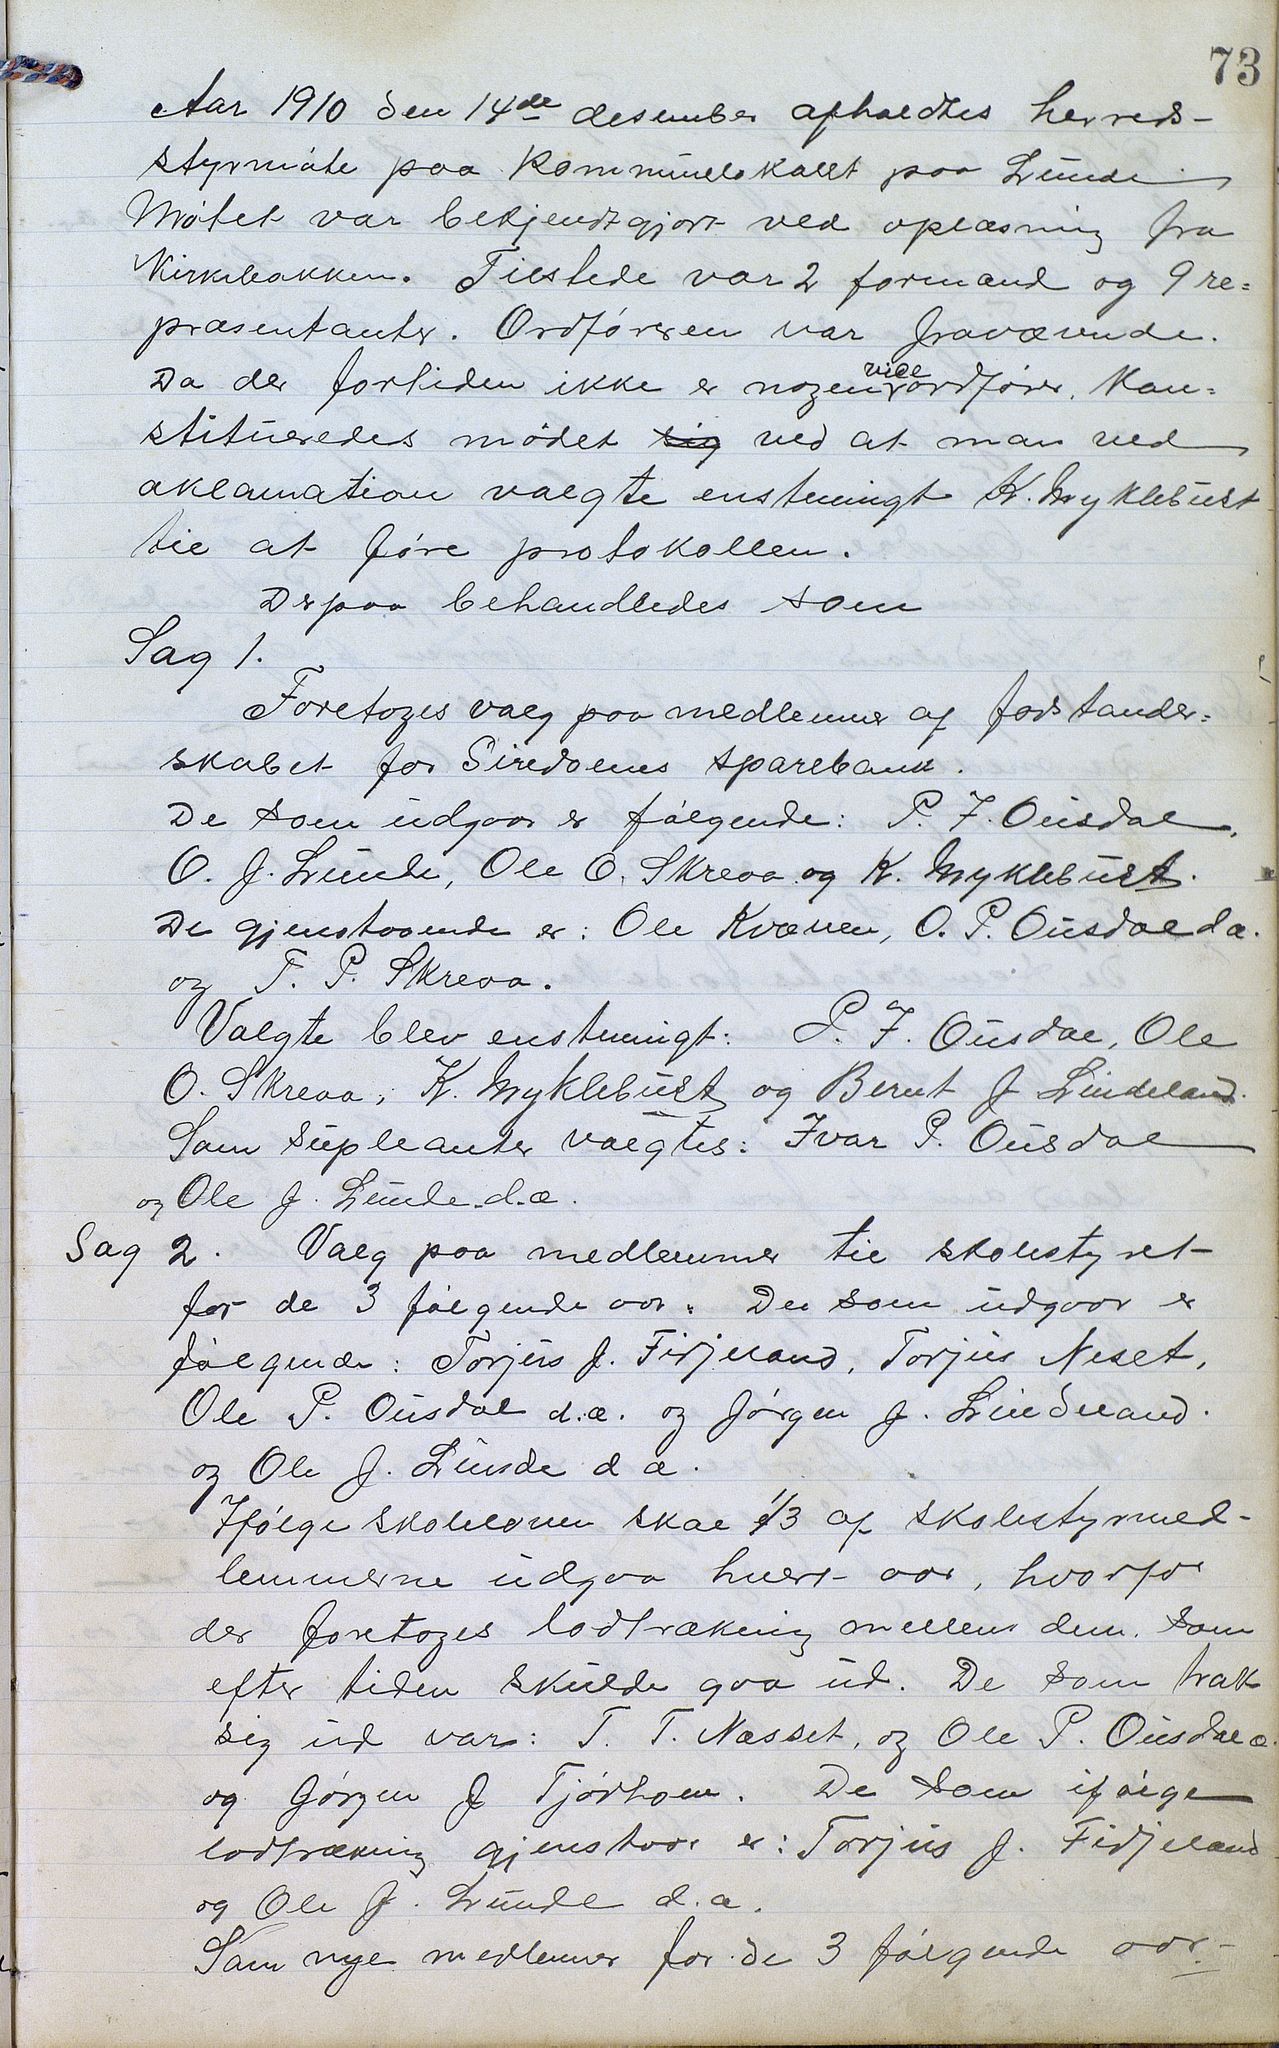 73
Aar 1910 den 14de desember afholdtes herreds-
styrmøte paa Kommunelokalet paa Lunde
Møtet var bekjendtgjort ved oplæsning fra
Kirkebakken. Tilstede var 2 formænd og 9 re=
præsentanter. Ordføreren var fraværende.
Da der fortiden ikke er nogen vice ordfører. Kon=
stitueredes mødet sig ved at man ved
aklamation valgte enstemigt K. Myklebust
til at føre protokollen.
Derpaa behandledes som
Sag 1.
Foretoges valg paa medlemmer af forstander=
skabet for Siredalens sparebank.
De som udgaar er følgende: P. F. Ousdal,
O. J. Lunde, Ole O. Skreaa og K. Myklebust.
De gjenstaaende er: Ole Kvæven, O. P. Ousdal d.æ.
og T. P. Skreaa.
Valgte blev enstemigt: P. F. Ousdal, Ole
O. Skreaa, K. Myklebust og Bernt J Lindeland.
Som supleanter valgtes: Ivar P. Ousdal
og Ole J. Lunde d.æ.
Sag 2. Valg paa medlemmer til skolestyret
for de 3 følgende aar. De som udgaar er
følgende: Torjus J. Fidjeland, Torjus Neset,
Ole P. Ousdal d.æ. og Jørgen J. Lindeland.
og Ole J. Lunde d æ.
Ifølge skoleloven skal 1/3 af skolestyrmed-
lemmerne udgaa hvert aar, hvorfor
der foretoges lodtrækning mellem dem som
efter tiden skulde gaa ud. De som trak
sig ud var: T. T. Næsset, og Ole P. Ousdal æ.
og Jørgen J Tjørhom. De som ifølge
lodtrækning gjenstaar er: Torjus J. Fidjeland
og Ole J. Lunde d.æ.
Som nye medlemer for de 3 følgende aar